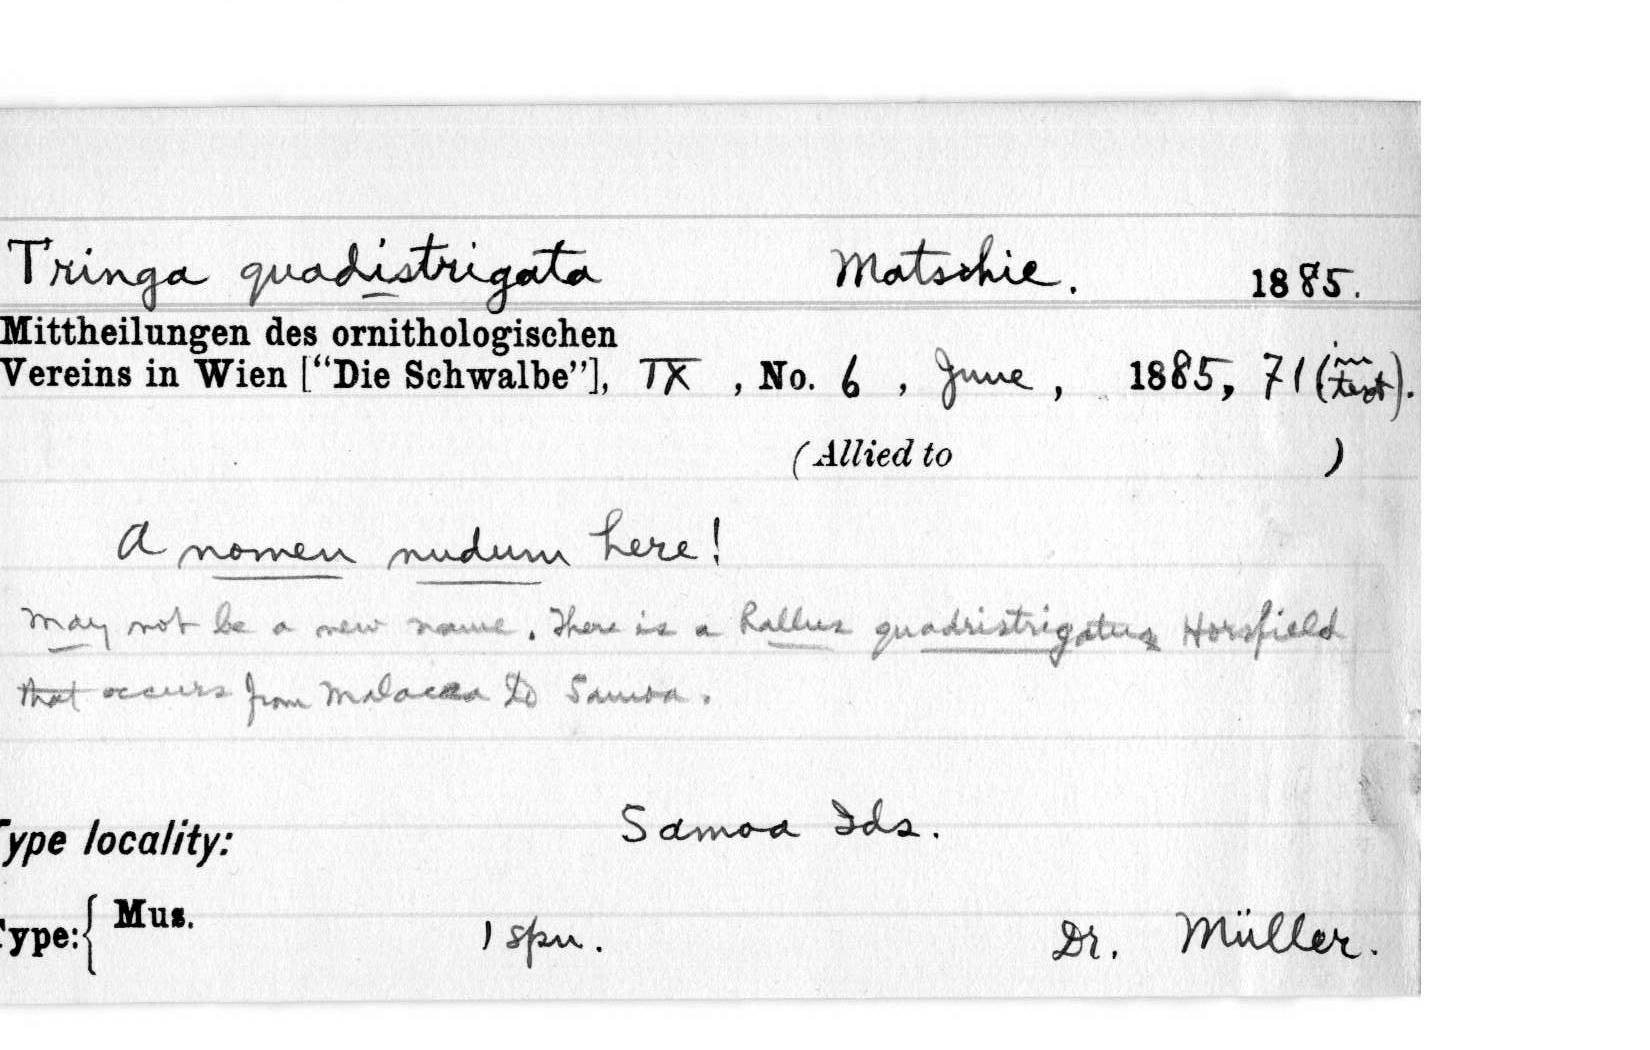 Tringa quadistrigata Matschie. 1885.
Mittheilungen des ornithologischen
Vereins in Wien ["Die Schwalbe"], IX, No. 6, June, 1885, 71 (in text).
(Allied to )
A nomen nudum here!
May not be a new name. There is a Rallus quadristrigatus Horsfield
that occurs from Malacca to Samoa.
Type locality: Samoa Ids.
Type: { Mus. 1 spn. Dr. Müller.